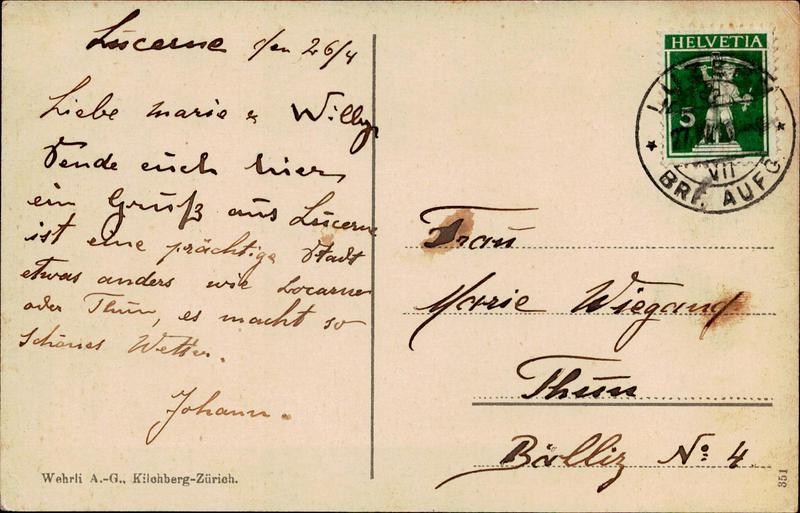 Lucerne den 26/4
Liebe Marie & Willy
Sende euch hier
ein Gruß aus Lucerne
ist eine prächtige Stadt
etwas anders wie Locarno
oder Thun, es macht so
schönes Wetter.
Johann.
Wehrli A.-G., Kilchberg-Zürich.
HELVETIA
5
LUZERN
VII
BRF. AUFG
Frau
Marie Wiegand
Thun
Bälliz No: 4.
351